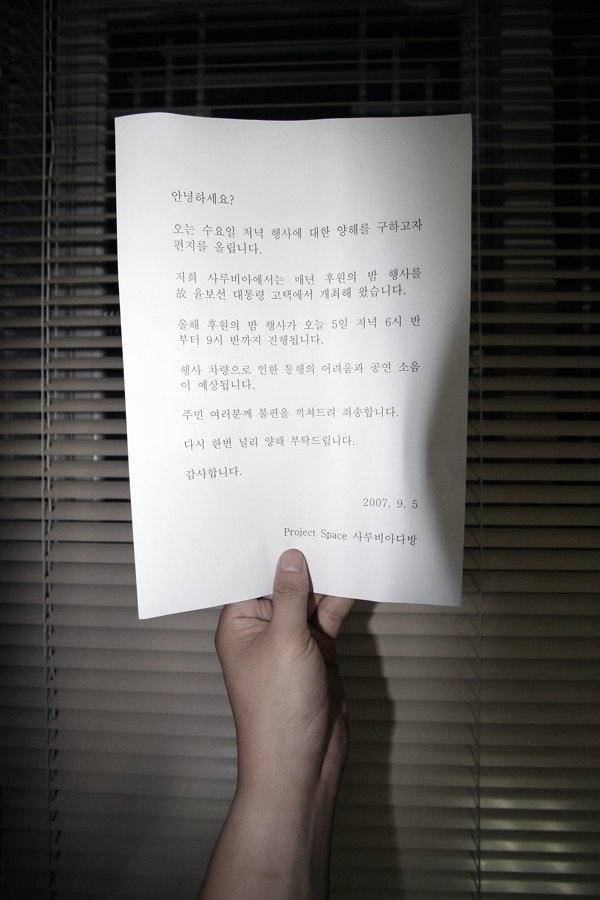 안녕하세요?
오는 수요일 저녁 행사에 대한 양해를 구하고자
편지를 올립니다.
저희 사루비아에서는 매년 후원의 밤 행사를
故 윤보선 대통령 고택에서 개최해 왔습니다.
올해 후원의 밤 행사가 오늘 5일 저녁 6시 반
부터 9시 반까지 진행됩니다.
행사 차량으로 인한 통행의 어려움과 공연 소음
이 예상됩니다.
주민 여러분께 불편을 끼쳐드려 죄송합니다.
다시 한번 널리 양해 부탁드립니다.
감사합니다.
2007. 9. 5
Project Space 사루비아다방